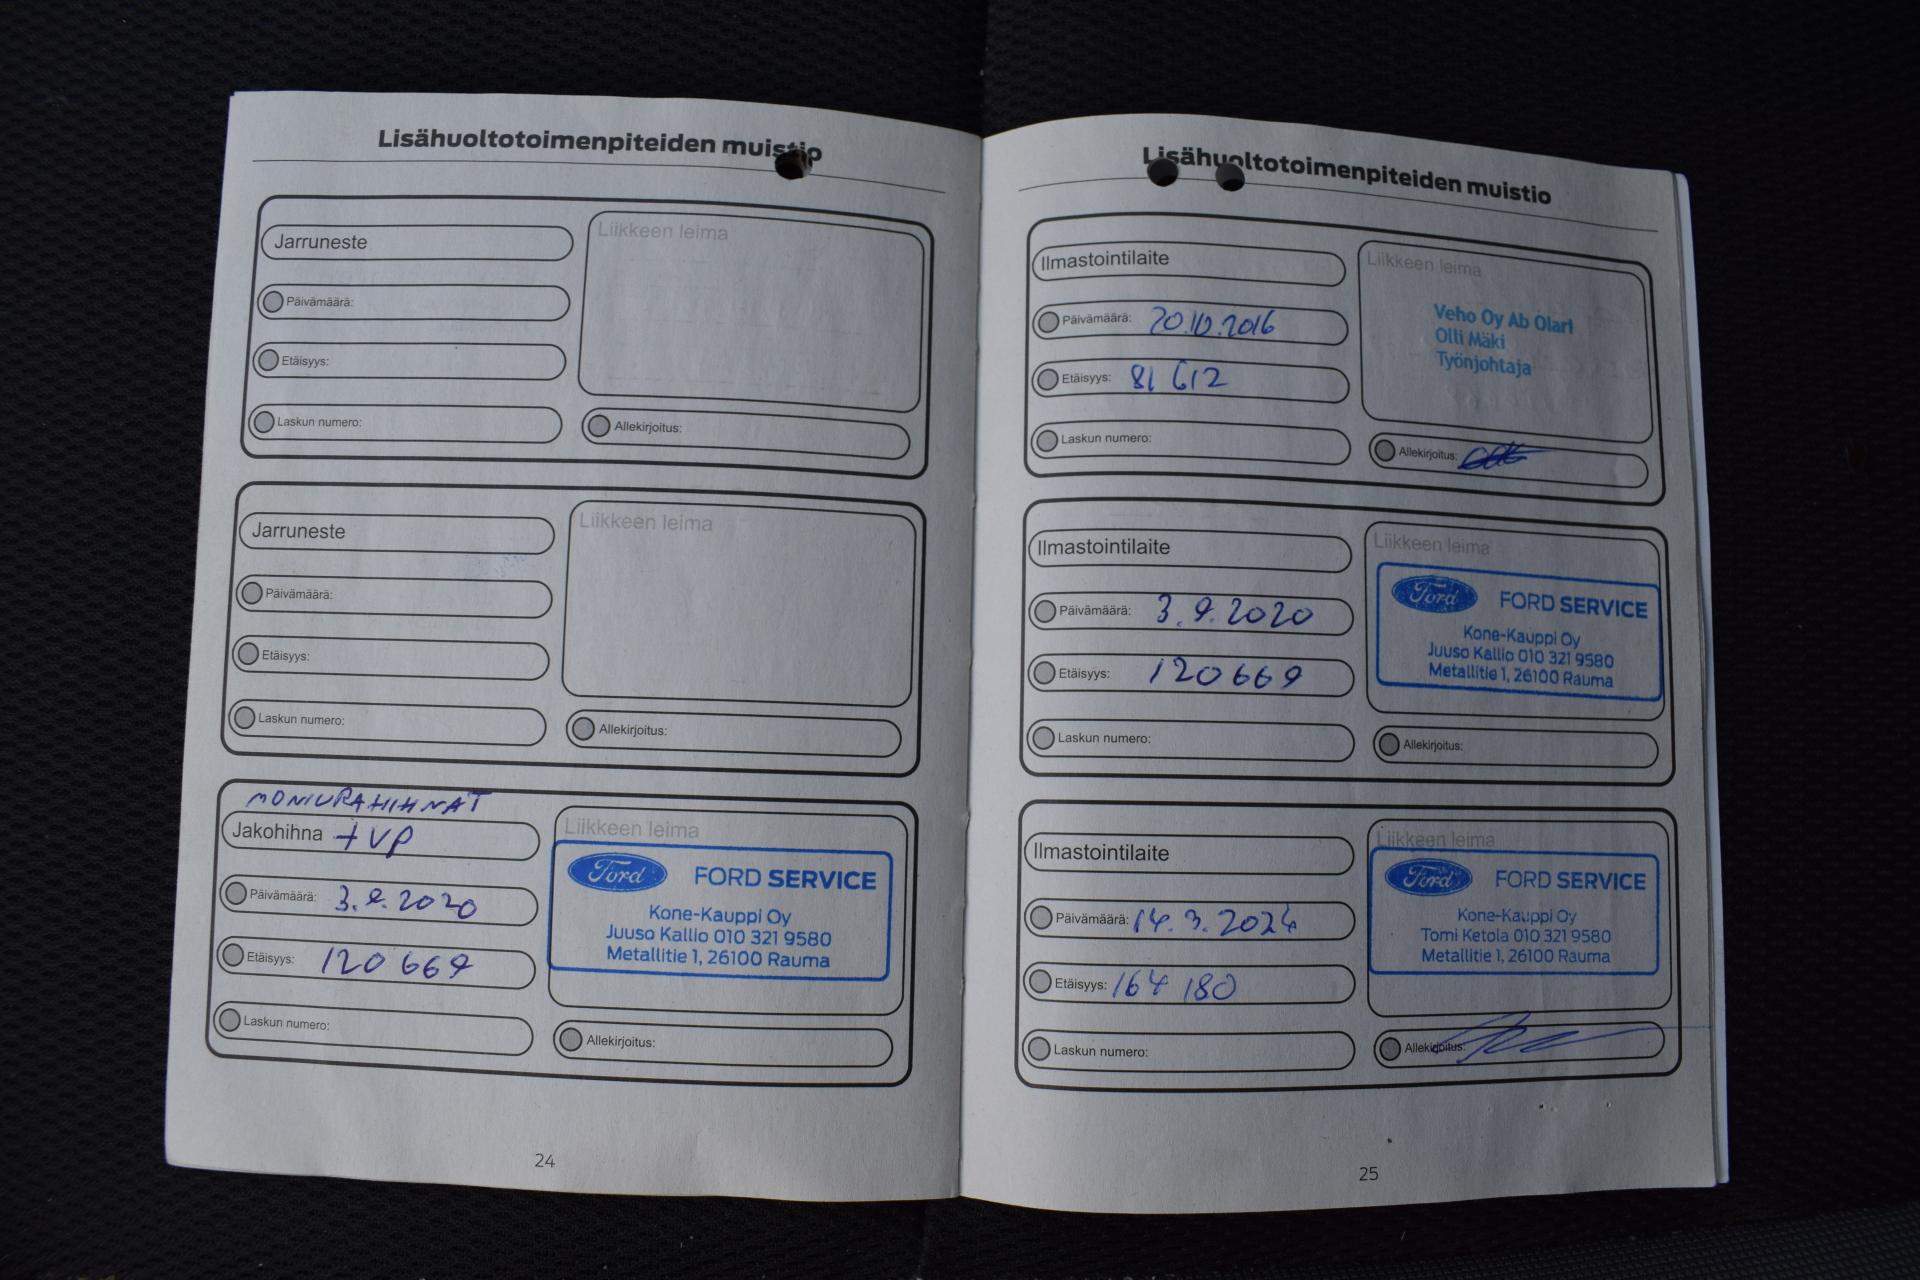 Lisähuoltotoimenpiteiden muistio
Jarruneste
Liikkeen leima
Päivämäärä:
Etäisyys:
Laskun numero:
Allekirjoitus:
Jarruneste
Liikkeen leima
Päivämäärä:
Etäisyys:
Laskun numero:
Allekirjoitus:
MONIURAHIHNAT
Jakohihna + VP
Liikkeen leima
Päivämäärä: 3.9.2020
Etäisyys: 120 669
Laskun numero:
Ford FORD SERVICE
Kone-Kauppi Oy
Juuso Kallio 010 321 9580
Metallitie 1, 26100 Rauma
Allekirjoitus:
24
Lisähuoltotoimenpiteiden muistio
Ilmastointilaite
Liikkeen leima
Päivämäärä: 20.10.2016
Etäisyys: 81 612
Laskun numero:
Veho Oy Ab Olari
Olli Mäki
Työnjohtaja
Allekirjoitus:
Ilmastointilaite
Liikkeen leima
Päivämäärä: 3.9.2020
Etäisyys: 120669
Laskun numero:
Ford FORD SERVICE
Kone-Kauppi Oy
Juuso Kallio 010 321 9580
Metallitie 1, 26100 Rauma
Allekirjoitus:
Ilmastointilaite
Liikkeen leima
Päivämäärä: 14.3.2024
Etäisyys: 164 180
Laskun numero:
Ford FORD SERVICE
Kone-Kauppi Oy
Tomi Ketola 010 321 9580
Metallitie 1, 26100 Rauma
Allekirjoitus:
25